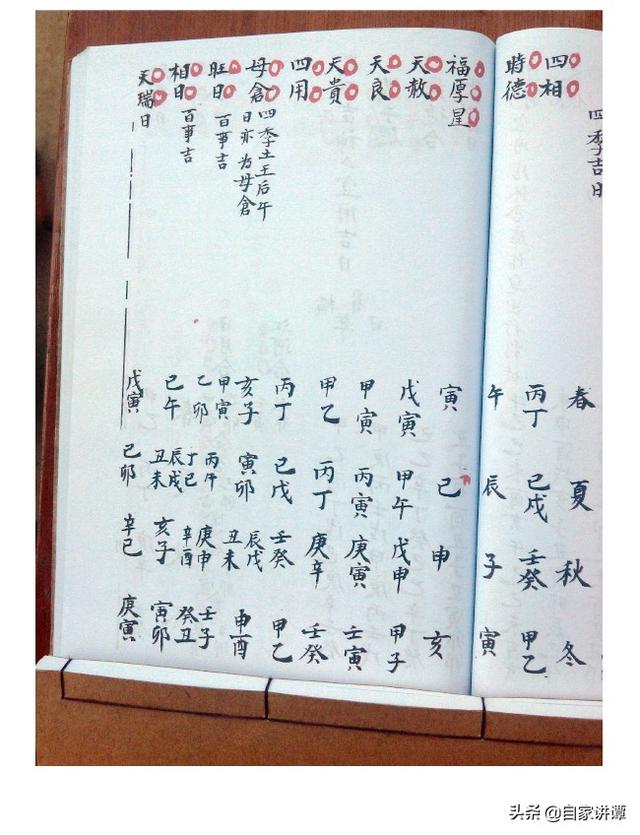 四季吉日 春 夏 秋 冬
四相 丙丁 己戊 壬癸 甲乙
時德 午 辰 子 寅
福厚星 寅 巳 申 亥
天赦 戊寅 甲午 戊申 甲子
天良 甲寅 丙寅 庚寅 壬寅
天貴 甲乙 丙丁 庚辛 壬癸
四用 丙丁 己戊 壬癸 甲乙
母倉 四季土王后午日亦为母倉 亥子 寅卯 辰戌丑未 申酉
旺日 百事吉 甲寅乙卯 丙午丁巳 庚申辛酉 壬子癸丑
相日 百事吉 巳午 辰戌丑未 亥子 寅卯
天瑞日 戊寅 己卯 辛巳 庚寅
头条 @自家讲谭